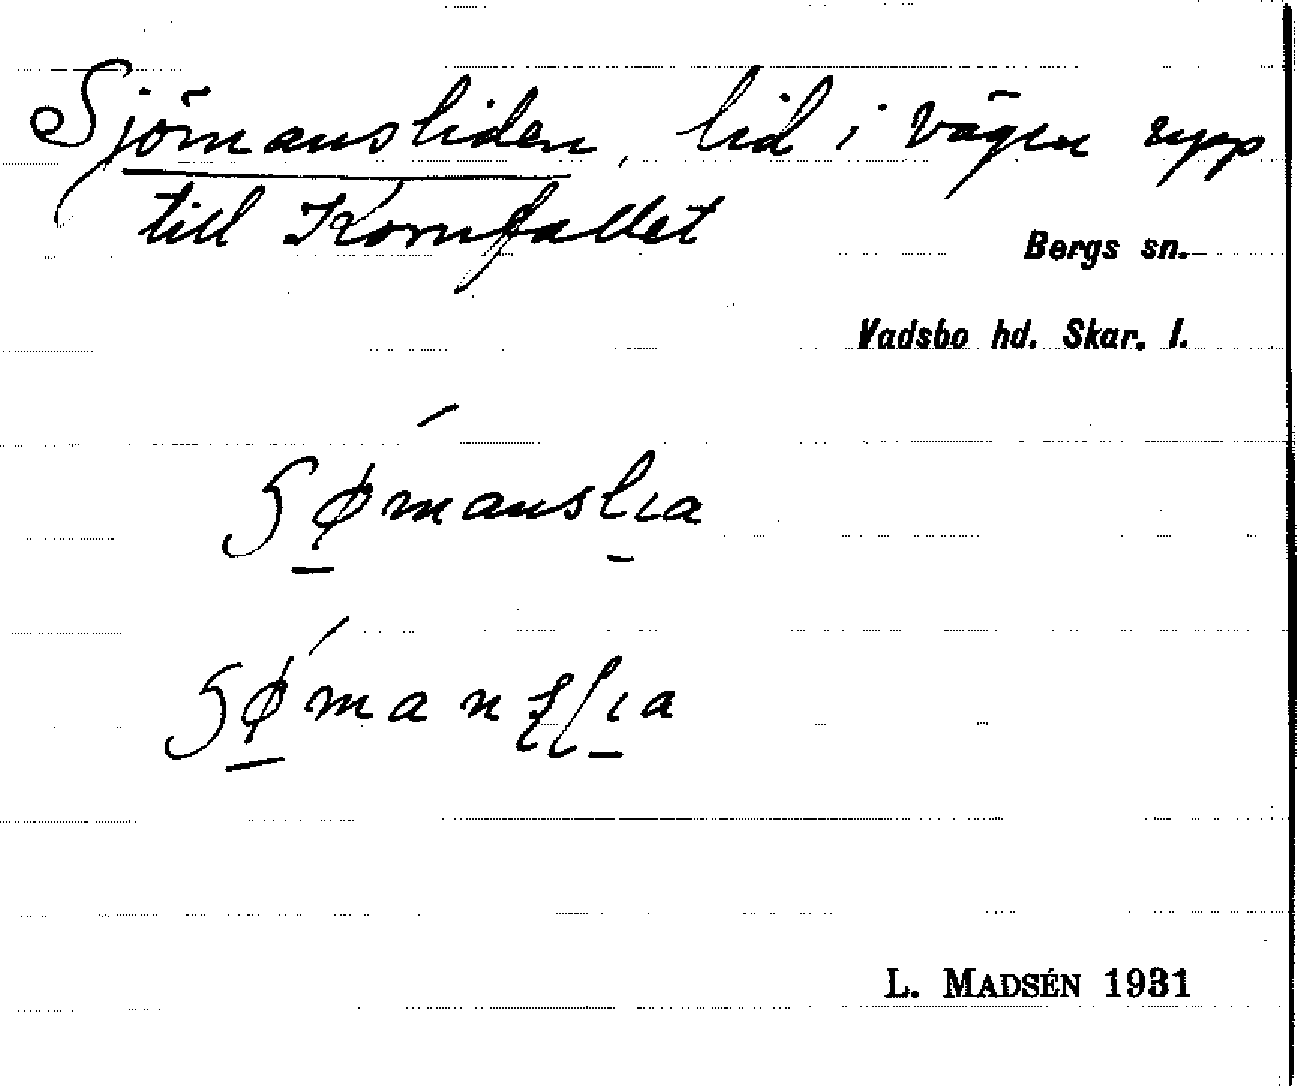 Sjömansliden, lid i vägen upp
till Kornfallet
Bergs sn.
Vadsbo hd. Skar. l.
L. MADSÉN 1931